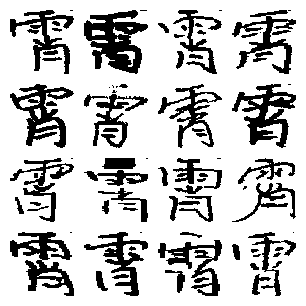 霄霄霄霄
霄霄霄霄
霄霄霄霄
霄霄霄霄